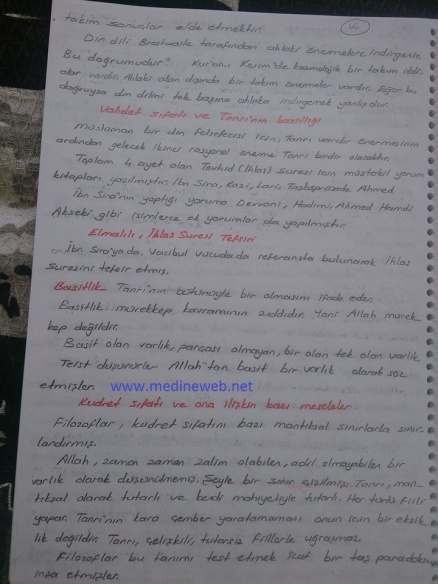 takım sonuçlar elde etmektir.
Din dili Braitwaite tarafından ahlaki önermelere indirgenir.
Bu doğrumudur? Kur'anı Kerim'de kozmolojik bir takım iddi
alar vardır. Ahlaki olan dışında bir takım önermeler vardır. Eğer bu
doğruysa din dilini tek başına ahlaka indirgemek yanlış olur.
Vahdet sıfatı ve Tanrı'nın basitliği
Müslüman bir din felsefecisi için, Tanrı vardır önermesinin
ardından gelecek ikinci rasyonel önerme Tanrı birdir olacaktır.
Toplam 4 ayet olan Tevhid (İhlas) Suresi için müstakil yorum
kitapları yazılmıştır. İbn Sina, Razi, Lari, Taşköprüzade Ahmed
İbn Sina'nın yaptığı yoruma Devvani, Hadimi, Ahmed Hamdi
Akseki gibi isimlerce ek yorumlar da yapılmıştır.
Elmalılı, İhlas Suresi Tefsiri
İbn Sina'ya da, Vacibul vucuda da referansta bulunarak İhlas
Suresini tefsir etmiş.
Basitlik Tanrı'nın bütünüyle bir olmasını ifade eder.
Basitlik mürekkep kavramının zıddıdır. Yani Allah mürek-
kep değildir.
Basit olan varlık, parçası olmayan, bir olan tek olan varlık
Teist düşünürler Allah'tan basit bir varlık olarak söz
etmişler.
www.medineweb.net
Kudret sıfatı ve ona ilişkin bazı meseleler
Filozoflar, kudret sıfatını bazı mantıksal sınırlarla sınır-
landırmış.
Allah, zaman zaman zalim olabilen, adil olmayabilen bir
varlık olarak düşünülmemiş. Şöyle bir sınır çizilmiş: Tanrı, man-
tıksal olarak tutarlı ve kendi mahiyetiyle tutarlı. Her türlü fiili
yapar. Tanrı'nın kare çember yaratamaması onun için bir eksik
lik değildir. Tanrı, çelişkili, tutarsız fiillerle uğraşmaz.
Filozoflar bu tanımı test etmek için bir taş paradoksu
inşa etmişler.